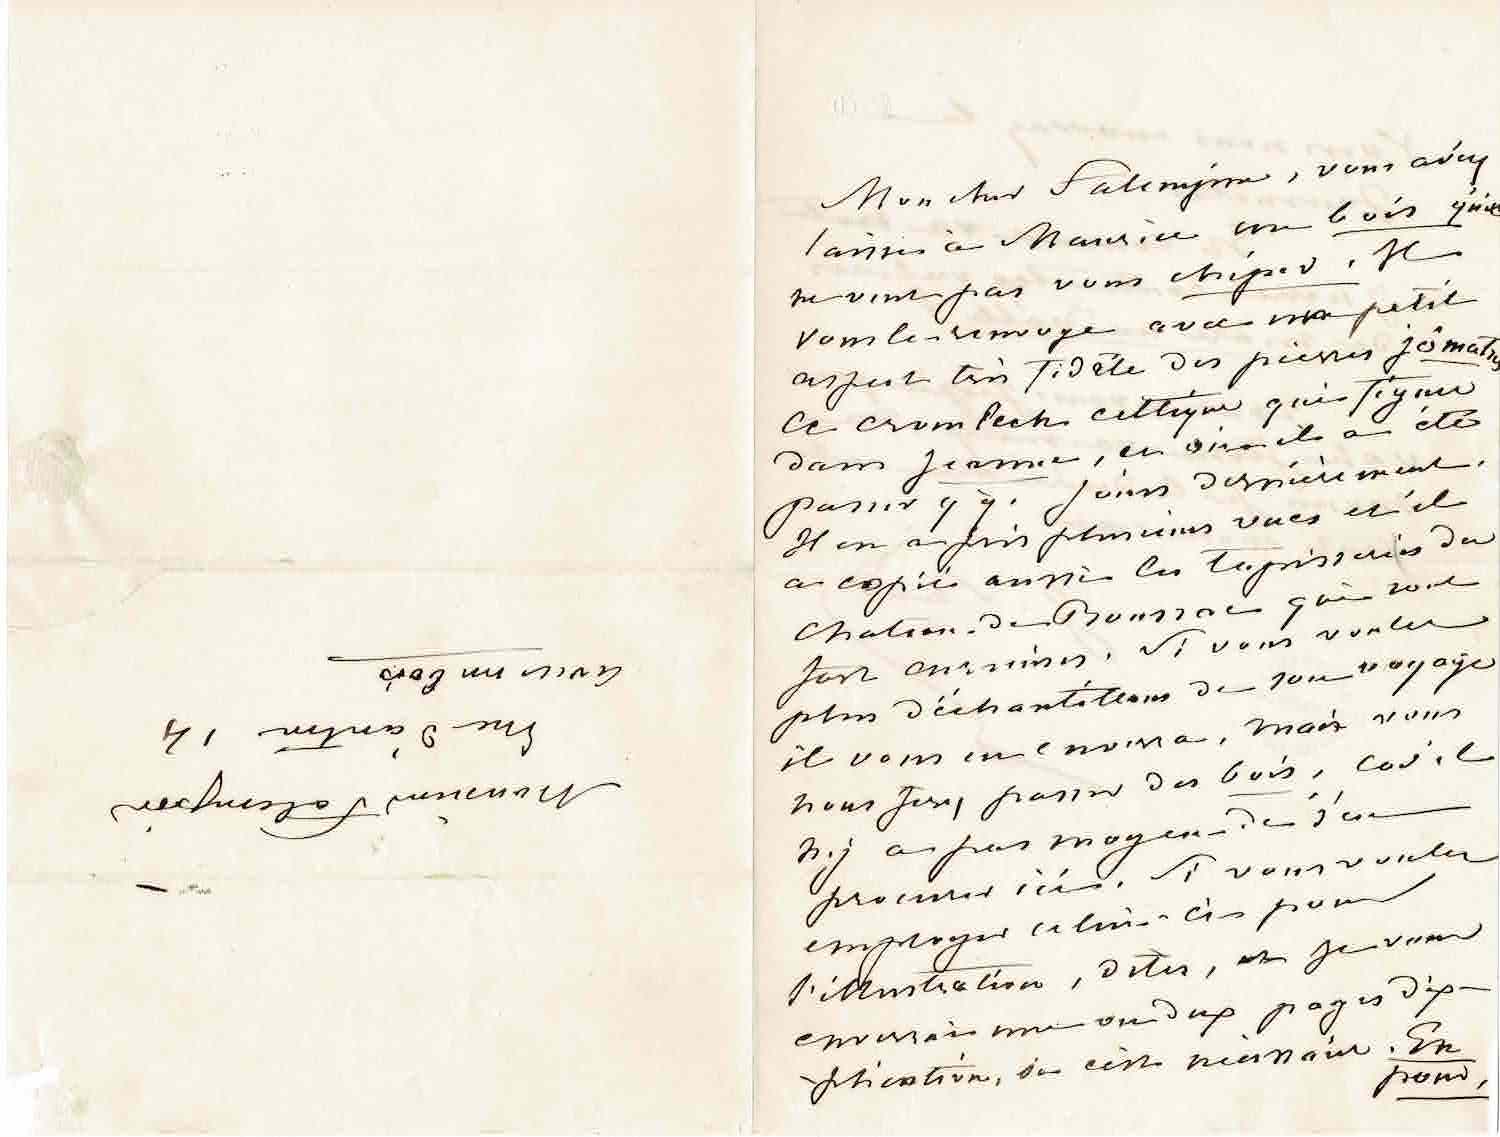 Mon cher Falempin, vous avez
laissé à Maurice un bois qu'il
ne veut pas vous chiper. Il
vous le renvoye avec un petit
aspect très fidèle des pierres jômatres
Ce cromlech celtique qui figure
dans Jeanne, et où il a été
passer qq. jours dernièrement.
Il en a pris plusieurs vues et il
a copié aussi les tapisseries du
Chateau de Boussac qui sont
fort curieuses. Si vous voulez
plus d'échantillons de son voyage
il vous en enverra, mais vous
nous ferez passer des bois, car il
n'y a pas moyen de s'en
procurer ici. Si vous voulez
employer celui-ci pour
l'illustration, dites, et je vous
enverrai une ou deux pages d'ex-
plication, si c'est nécessaire. En
pour,
Monsieur Falempin
Rue d'antin 14
avec un bois